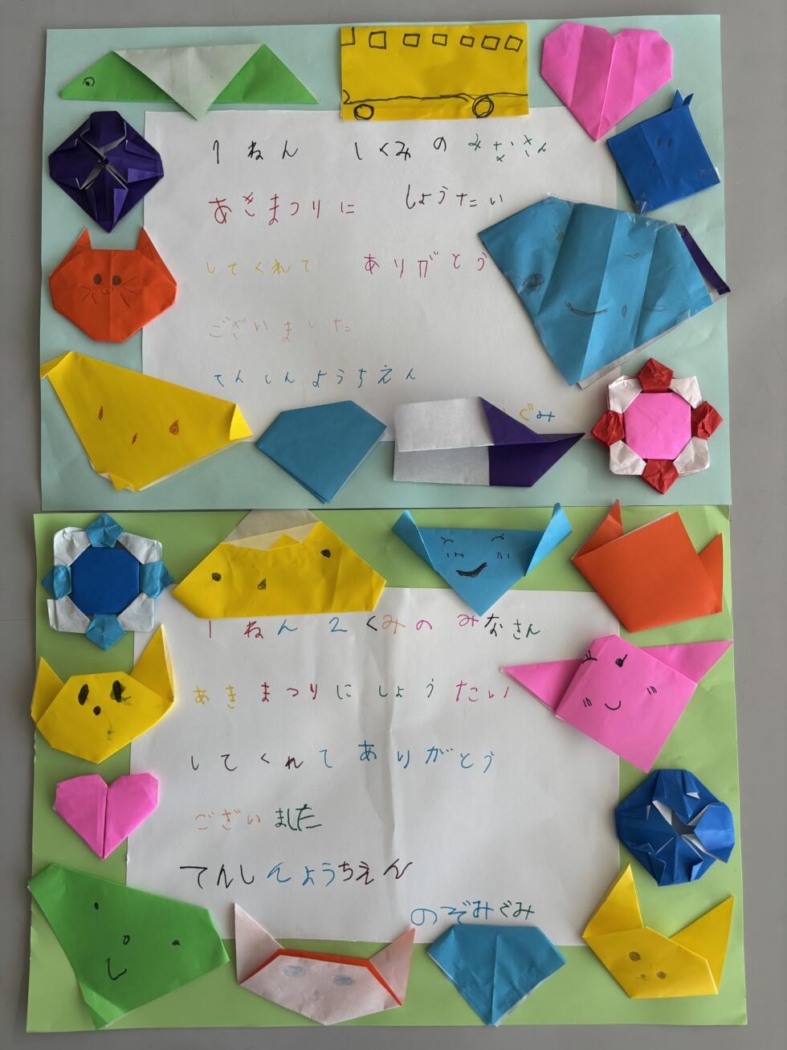 1ねん しくみの みなさん
あきまつりに しょうたい
してくれて ありがとう
ございました
てんしんようちえん
ぐみ
1ねん 2くみの みなさん
あきまつりに しょうたい
してくれて ありがとう
ございました
てんしんようちえん
のぞみぐみ